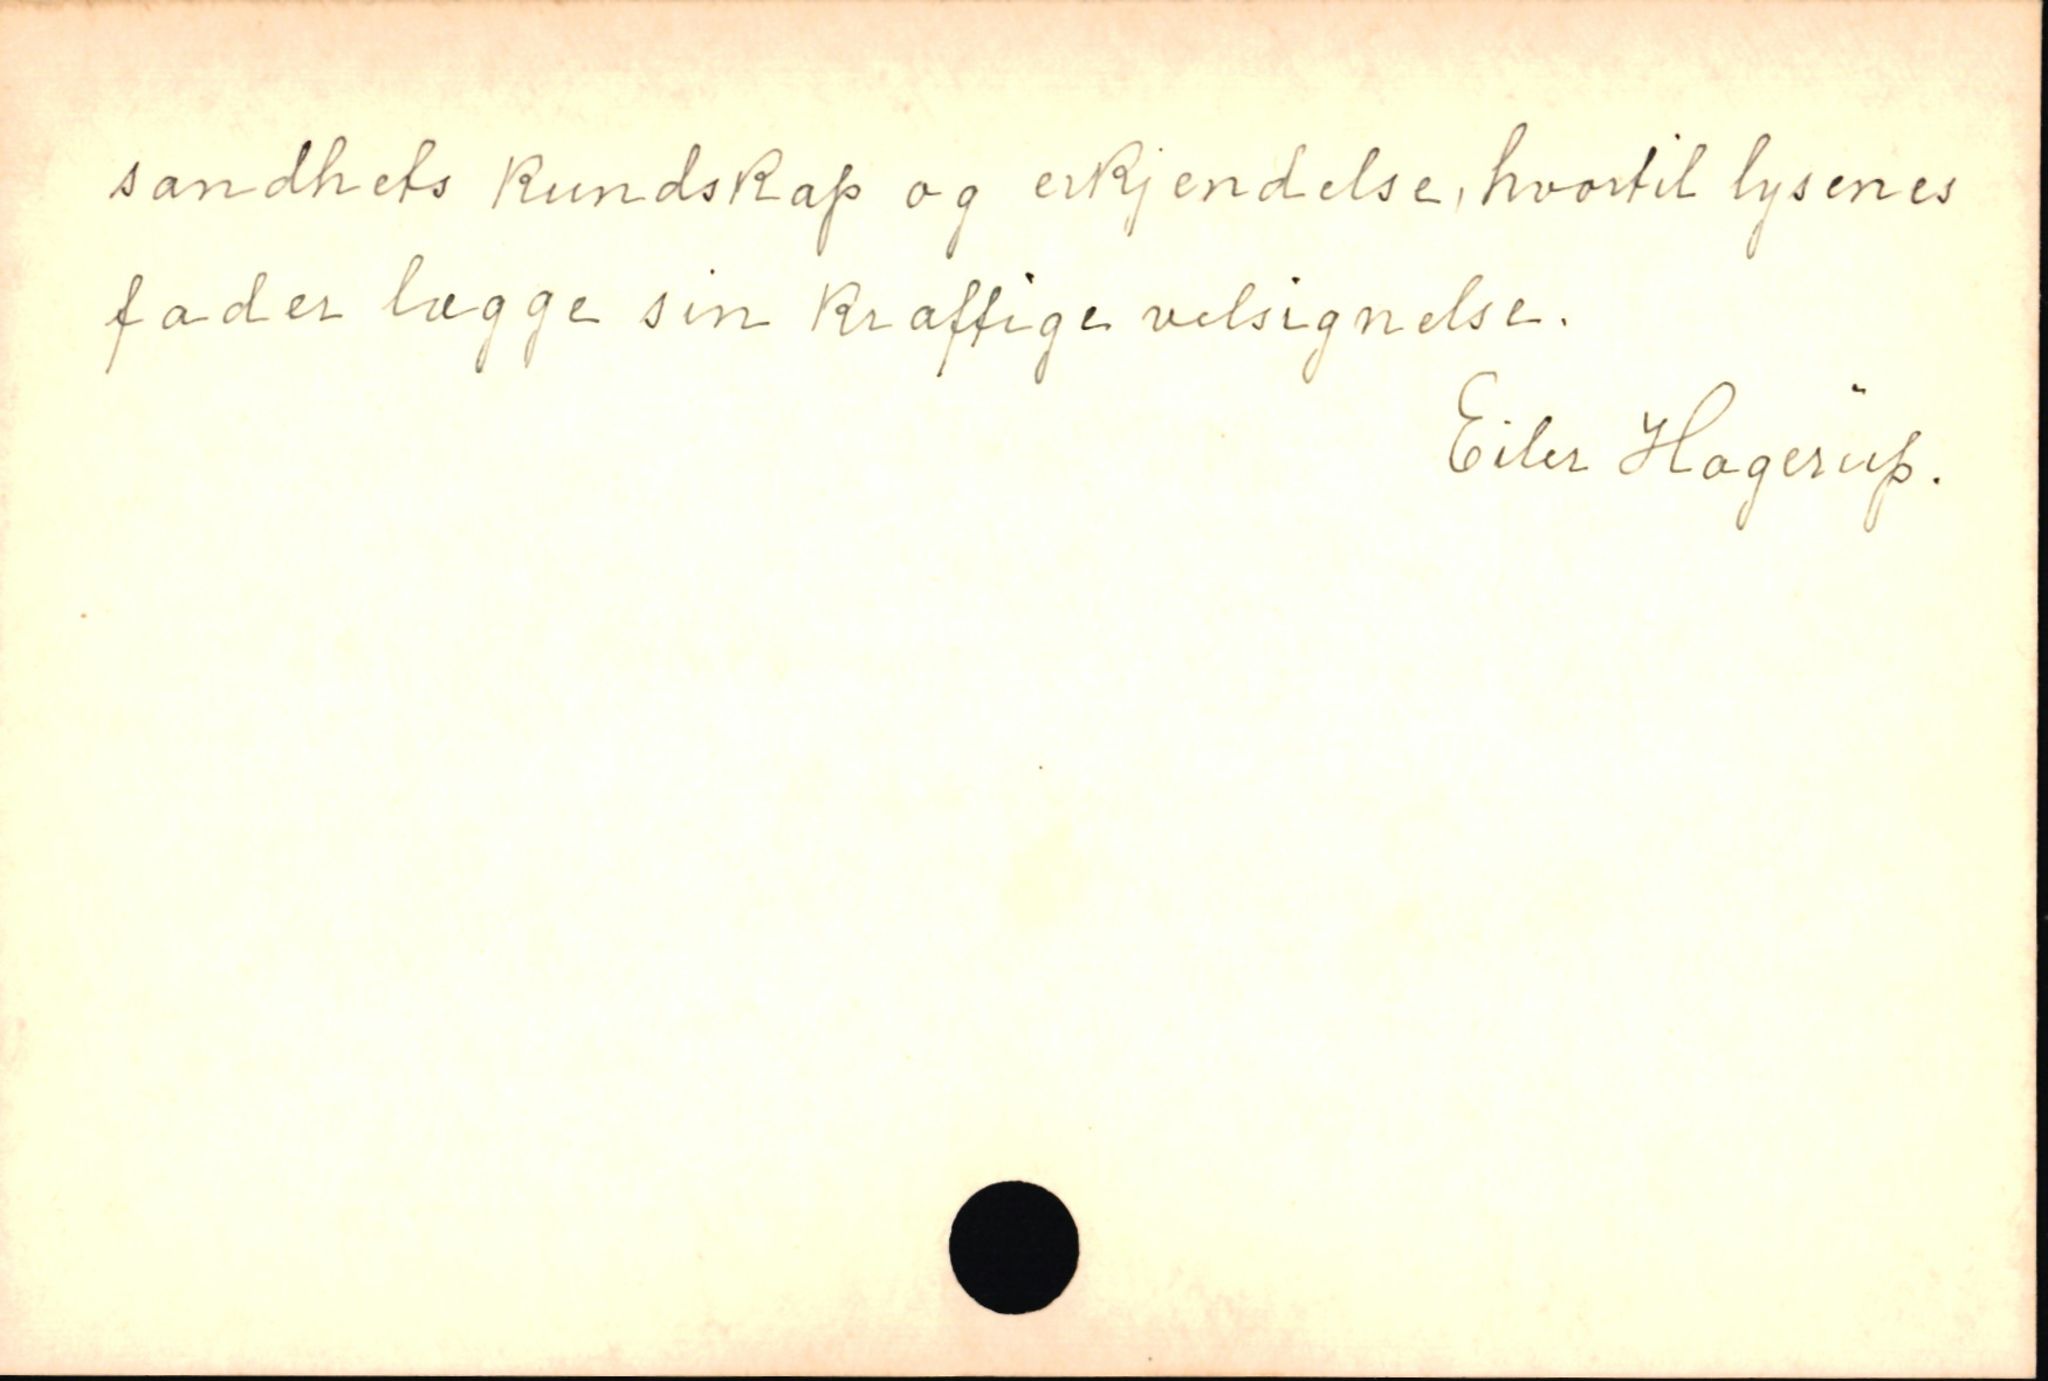 sandhets kundskap og erkjendelse, hvortil lysenes
fader lægge sin kraftige velsignelse.
Eiler Hagerüp.